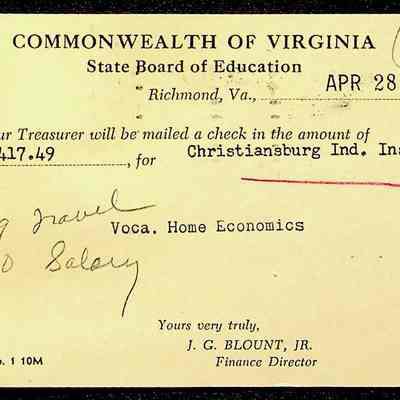 COMMONWEALTH OF VIRGINIA
State Board of Education
APR 28
Richmond, Va.,
ur Treasurer will be mailed a check in the amount of
417.49, for Christiansburg Ind. Ins
g Travel
Voca. Home Economics
0 Salary
Yours very truly,
J. G. BLOUNT, JR.
Finance Director
o. 1 10M